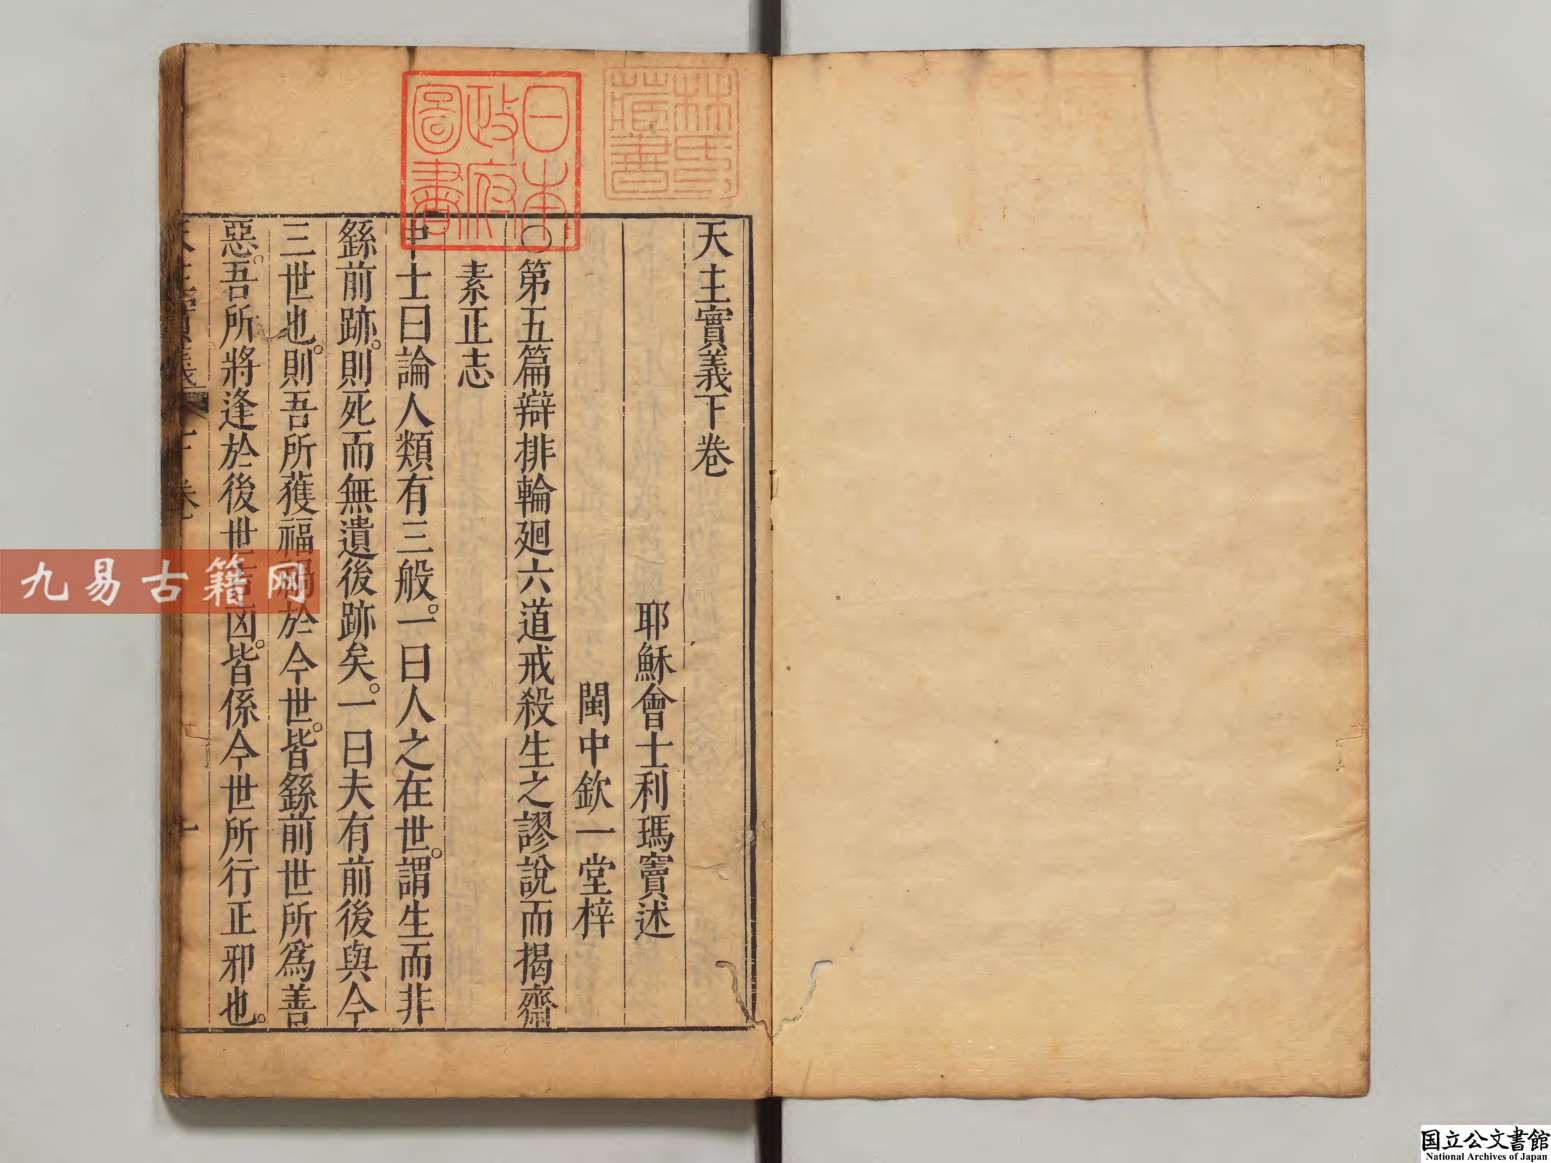 天主實義下卷
耶穌會士利瑪竇述
閩中欽一堂梓
○第五篇辯排輪廻六道戒殺生之謬說而揭齋
素正志
中士曰論人類有三般。一曰人之在世。謂生而非
繇前跡。則死而無遺後跡矣。一曰夫有前後與今
三世也。則吾所獲福禍於今世。皆繇前世所爲善
惡。吾所將逢於後世吉凶。皆係今世所行正邪也。
天主實義 下卷 一
日本
政府
圖書
林氏
藏書
九易古籍网
国立公文書館
National Archives of Japan